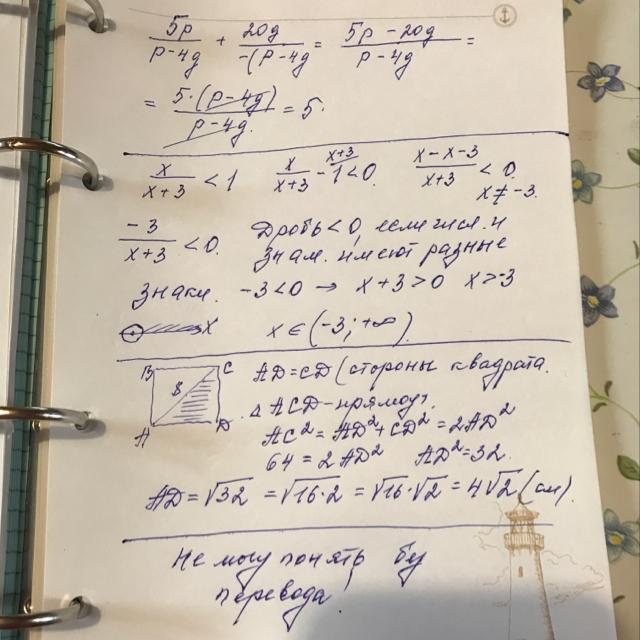 5p/(p-4g) + 20g/-(p-4g = (5p-20g)/(p-4g) =
= 5·(p-4g)/(p-4g) = 5.
x/(x+3) < 1 x/(x+3) - 1 < 0. x+3 (x-x-3)/(x+3) < 0.
x ≠ -3.
-3/(x+3) < 0. Дробь < 0, если числ. и
знам. имеют разные
знаки. -3<0 → x+3>0 x>-3
x x∈(-3; +∞).
B C AD=CD (стороны квадрата.
8
Δ ACD-прямоуг.
A D AC²=AD²+CD²=2AD²
64=2AD² AD²=32.
AD=√32 =√16·2 =√16·√2 =4√2 (см).
Не могу понять,
перевода